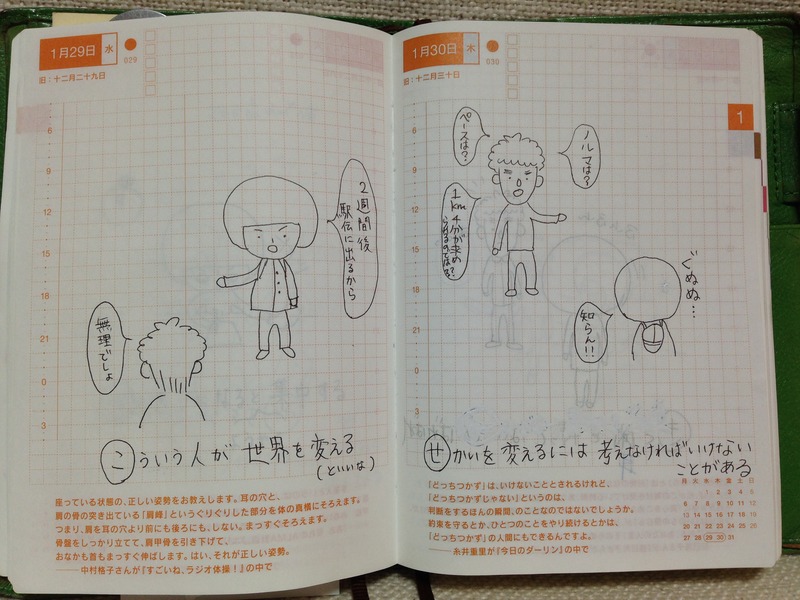 1月29日 水
029
旧：十二月二十九日
6
9
12
15
18
21
0
3
2週間後
駅伝に出るから
無理でしょ
こういう人が 世界を変える
(といいな)
座っている状態の、正しい姿勢をお教えします。耳の穴と、
肩の骨の突き出ている「肩峰」というぐりぐりした部分を体の真横にそろえます。
つまり、肩を耳の穴より前にも後ろにも、しない。まっすぐそろえます。
骨盤をしっかり立てて、肩甲骨を引き下げて、
おなかも首もまっすぐ伸ばします。はい、それが正しい姿勢。
――中村格子さんが『すごいね、ラジオ体操！』の中で
1月30日 木
030
旧：十二月三十日
1
6
9
12
15
18
21
0
3
ペースは？
ノルマは？
1km4分が求め
られるのでは？
ぐぬぬ…
知らん!!
せかいを変えるには 考えなければいけない
ことがある
「どっちつかず」は、いけないこととされるけれど、
「どっちつかずじゃない」というのは、
判断をするほんの瞬間、のことなのではないでしょうか。
約束を守るとか、ひとつのことをやり続けるとかは、
「どっちつかず」の人間にもできるんですよ。
――糸井重里が『今日のダーリン』の中で
月 火 水 木 金 土 日
1 2 3 4 5
6 7 8 9 10 11 12
13 14 15 16 17 18 19
20 21 22 23 24 25 26
27 28 29 30 31